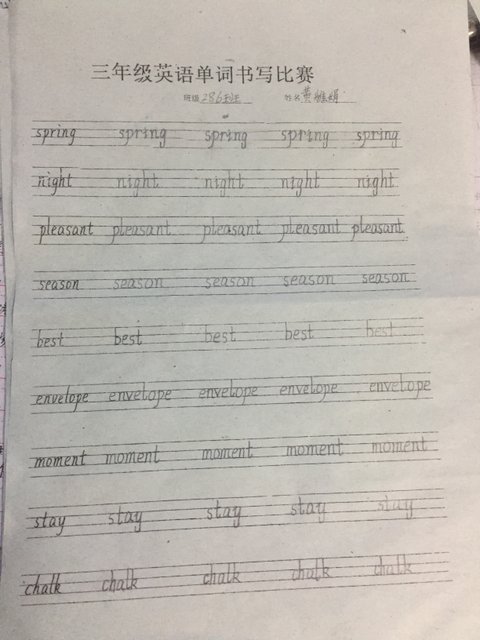 三年级英语单词书写比赛
班级 286班 姓名 黄
spring spring spring spring spring
night night night night night
pleasant pleasant pleasant pleasant pleasant
season season season season season
best best best best best
envelope envelope envelope envelope envelope
moment moment moment moment moment
stay stay stay stay stay
chalk chalk chalk chalk chalk